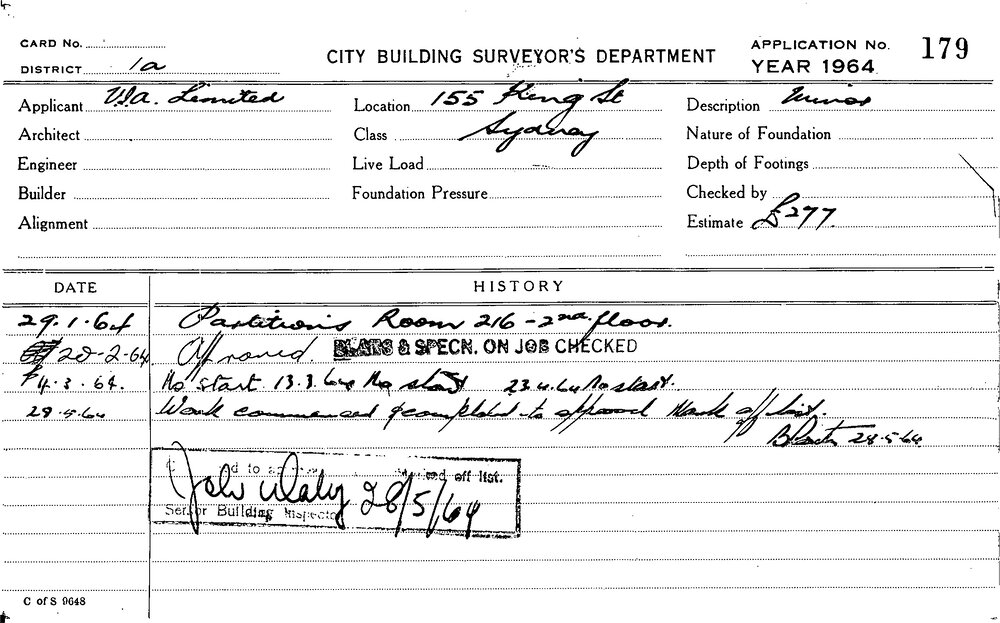 CARD No.
DISTRICT 1a
CITY BUILDING SURVEYOR'S DEPARTMENT
APPLICATION No. 179
YEAR 1964
Applicant V.I.A. Limited
Location 155 King St
Description Minor
Architect
Class Sydney
Nature of Foundation
Engineer
Live Load
Depth of Footings
Builder
Foundation Pressure
Checked by
Alignment
Estimate £277
DATE HISTORY
29.1.64 Partitions Room 216 - 2nd floor.
20-2-64 Approved. PLANS & SPECN. ON JOB CHECKED
4.3.64. No start 13.3.64 No start 23.4.64 No start.
28.5.64 Work commenced & completed to approval Mark off list.
28.5.64
ed to marked off list.
28/5/64
Senior Building Inspector
C of S 9648